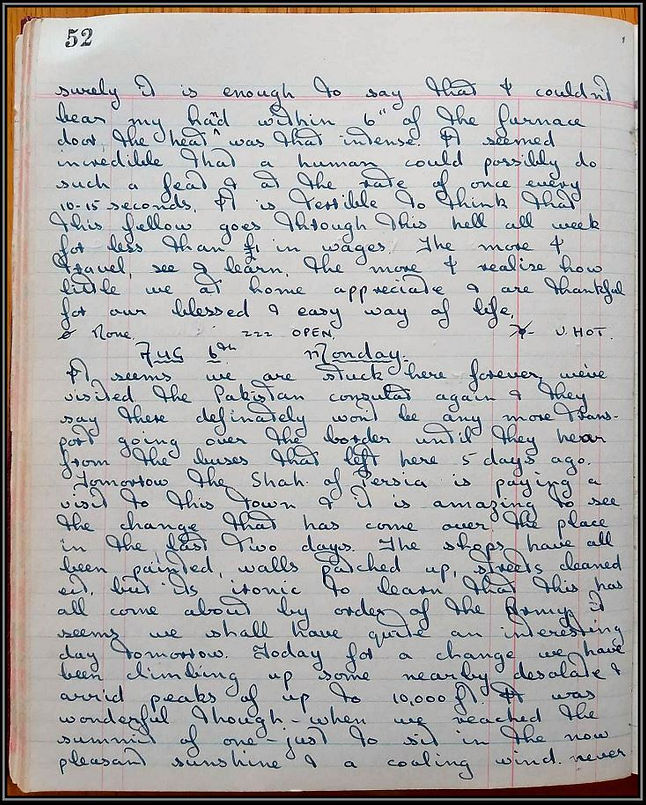 52
surely it is enough to say that I couldn't
bear my hand within 6" of the furnace
door, the heat was that intense. It seemed
incredible that a human could possibly do
such a feat & at the rate of once every
10-15 seconds. It is terrible to think that
this fellow goes through this hell all week
for less than £1 in wages. The more I
travel, see & learn, the more I realise how
little we at home appreciate & are thankful
for our blessed & easy way of life.
None. 222 OPEN. V. HOT.
Aug 6th Monday.
It seems we are stuck here forever, we've
visited the Pakistan consulat again & they
say there definately won't be any more trans-
port going over the border until they hear
from the buses that left here 5 days ago.
Tomorrow the Shah of Persia is paying a
visit to this town & it is amazing to see
the change that has come over the place
in the last two days. The shops have all
been painted, walls patched up, streets cleaned
ect. but its ironic to learn that this has
all come about by order of the Army, it
seems we shall have quite an interesting
day tomorrow. Today for a change we have
been climbing up some nearby desolate &
arrid peaks of up to 10,000 ft. It was
wonderful though - when we reached the
summit of one - just to sit in the now
pleasant sunshine & a cooling wind. never